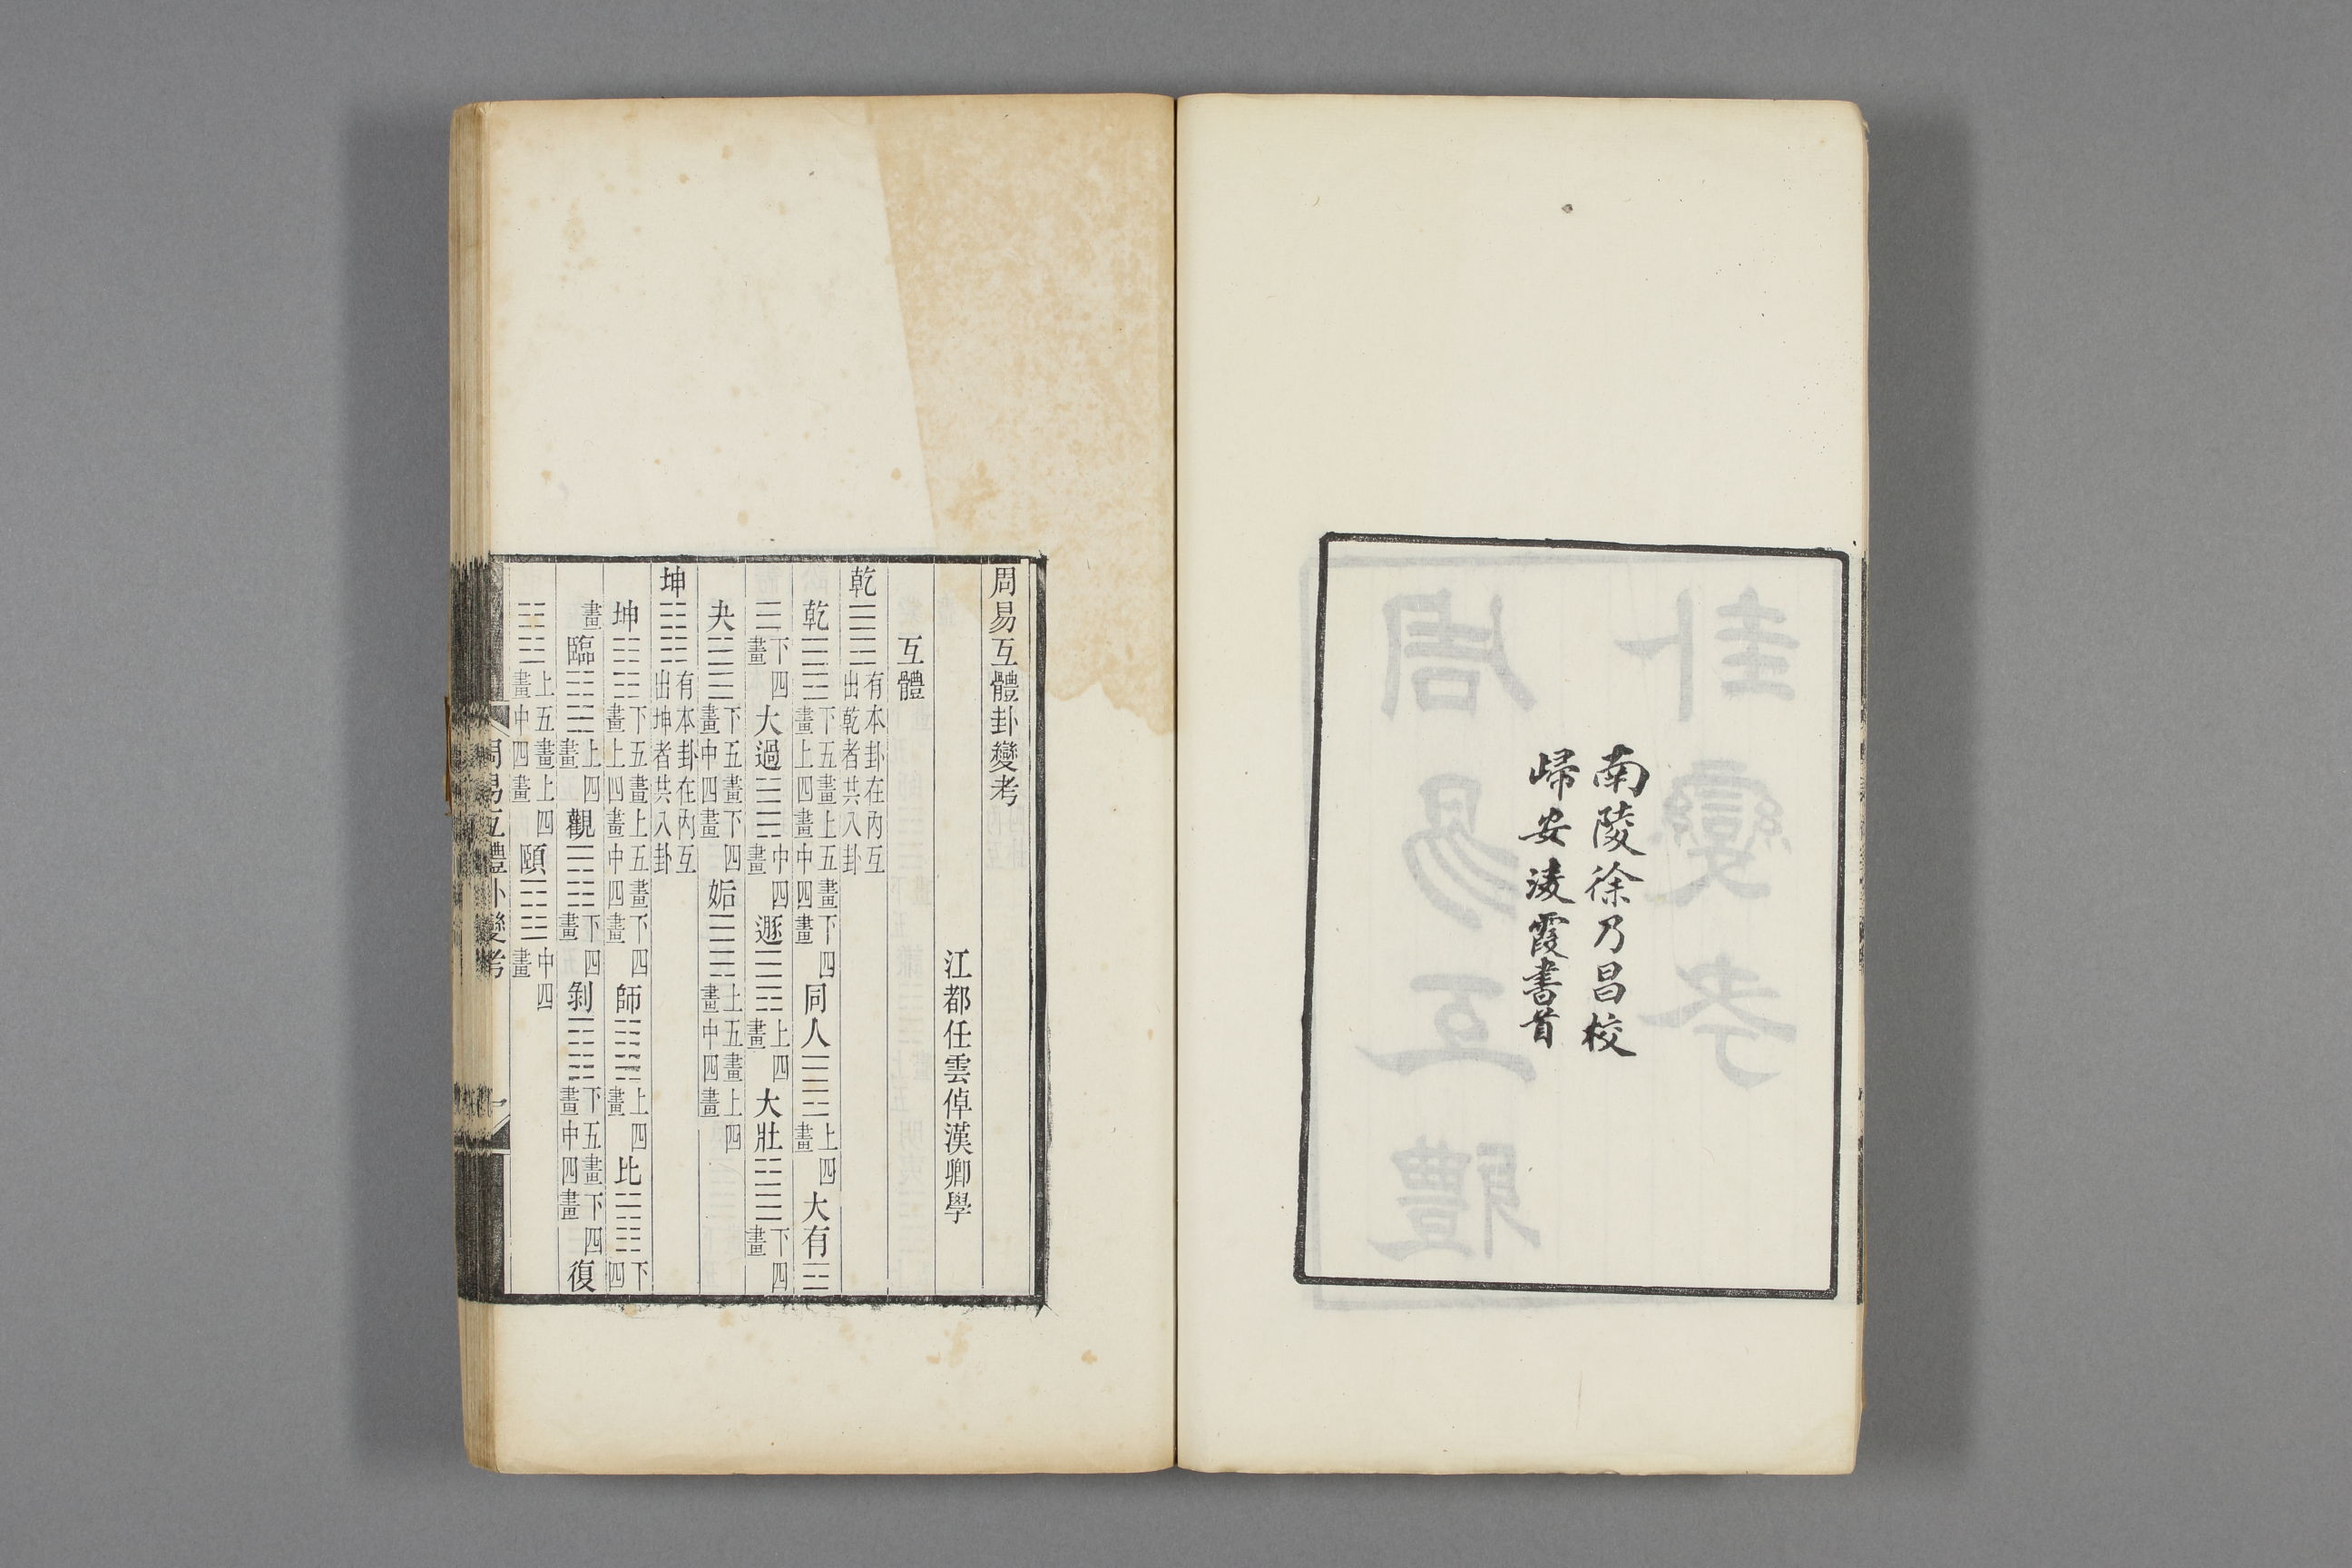 南陵徐乃昌校
歸安淩霞書首
周易互體卦變考
江都任雲倬漢卿學
互體
乾䷀有本卦在內互出乾者共入卦
乾䷀下五畫上五畫下四畫上四畫中四畫同人䷌上四畫大有䷍
下四畫大過䷛中四畫遯䷠上四畫大壯䷡下四畫
夬䷪下五畫下四畫中四畫姤䷫上五畫上四畫中四畫
坤䷁有本卦在內互出坤者共入卦
坤䷁下五畫上五畫下四畫上四畫中四畫師䷆上四畫比䷇下四
畫臨䷒上四畫觀䷓下四畫剝䷖下五畫下四畫中四畫復
䷗上五畫上四畫中四畫頤䷚中四畫
周易互體卦變考